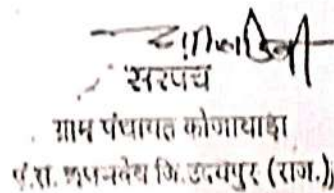 सरपंच
ग्राम पंचायत कोजावाड़ा
पं.स. जि. उदयपुर (राज.)